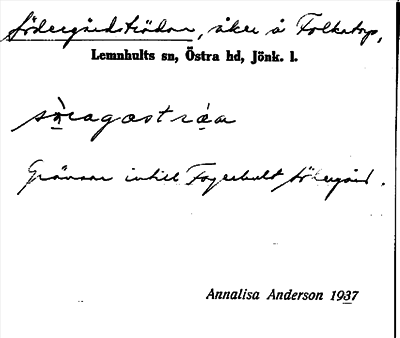 Södergårdströdan, åker å Folkatorp,
Lemnhults sn, Östra hd, Jönk. l.
sòragastráa
Gränsar intill Fagerhult Södergård.
Annalisa Anderson 1937